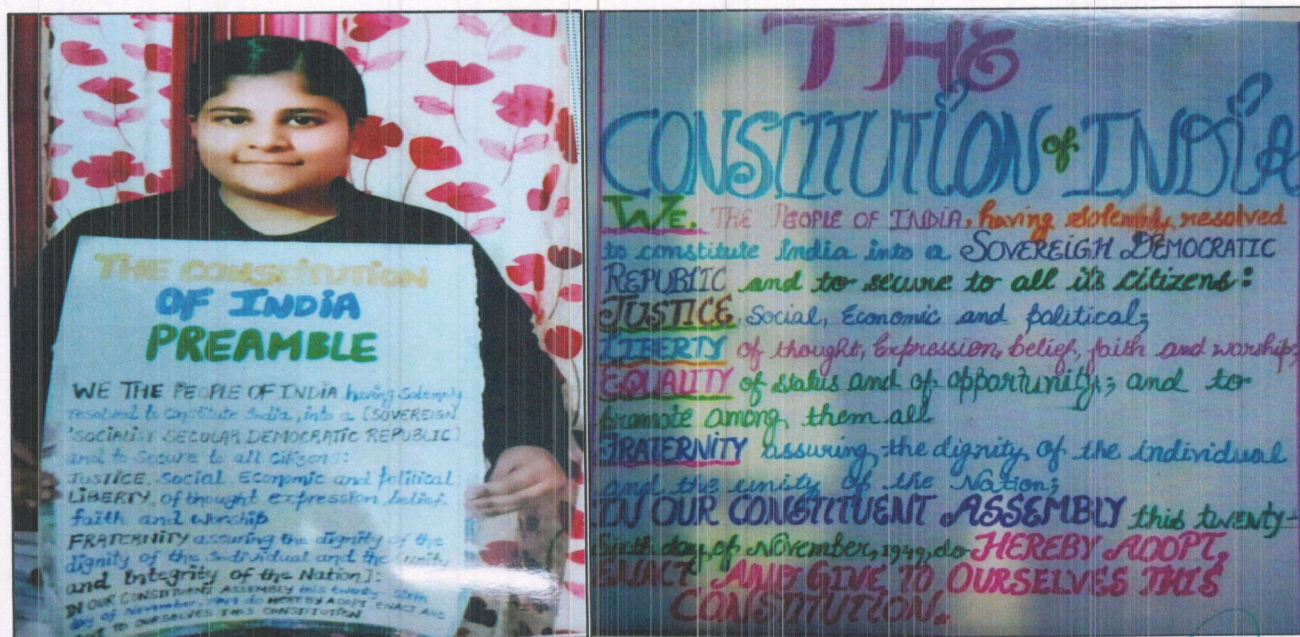 THE CONSTITUTION
OF INDIA
PREAMBLE
WE THE PEOPLE OF INDIA having Solemnly
resolved to constitute India, into a [SOVEREIGN
SOCIALIST SECULAR DEMOCRATIC REPUBLIC]
and to Secure to all Citizens:
JUSTICE, social Economic and political:
LIBERTY, of thought expression belief
faith and worship
FRATERNITY assuring the dignity of the
dignity of the individual and the unity
and Integrity of the Nation]:
IN OUR CONSTITUENT ASSEMBLY this twenty-sixth
day of November, 1949 HEREBY ADOPT ENACT AND
TO OURSELVES THIS CONSTITUTION
THE
CONSTITUTION of INDIA
WE, THE PEOPLE OF INDIA, having solemnly resolved
to constitute India into a SOVEREIGH DEMOCRATIC
REPUBLIC and to secure to all its citizens:
JUSTICE, Social, Economic and political;
LIBERTY of thought, Expression, belief, faith and worship;
EQUALITY of status and of opportunity; and to
promote among them all
FRATERNITY assuring the dignity of the individual
and the unity of the Nation;
IN OUR CONSTITUENT ASSEMBLY this twenty-
sixth day of November, 1949, do HEREBY ADOPT,
ENACT AND GIVE TO OURSELVES THIS
CONSTITUTION.